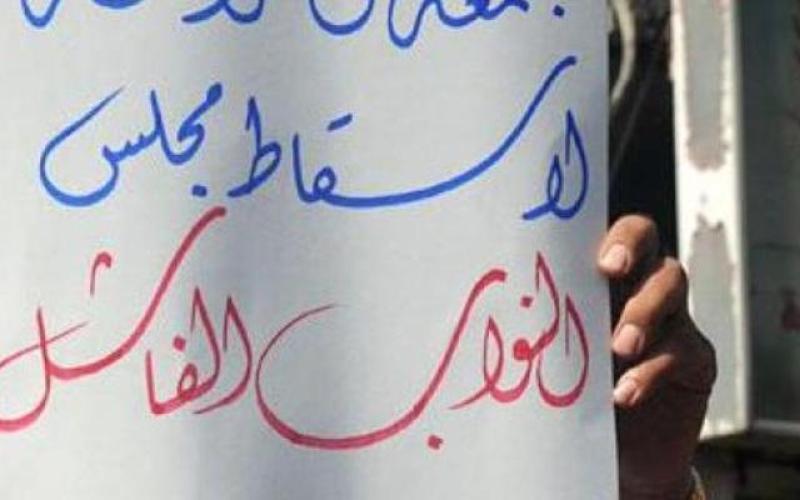 لاسقاط مجلس
النواب الفاشل